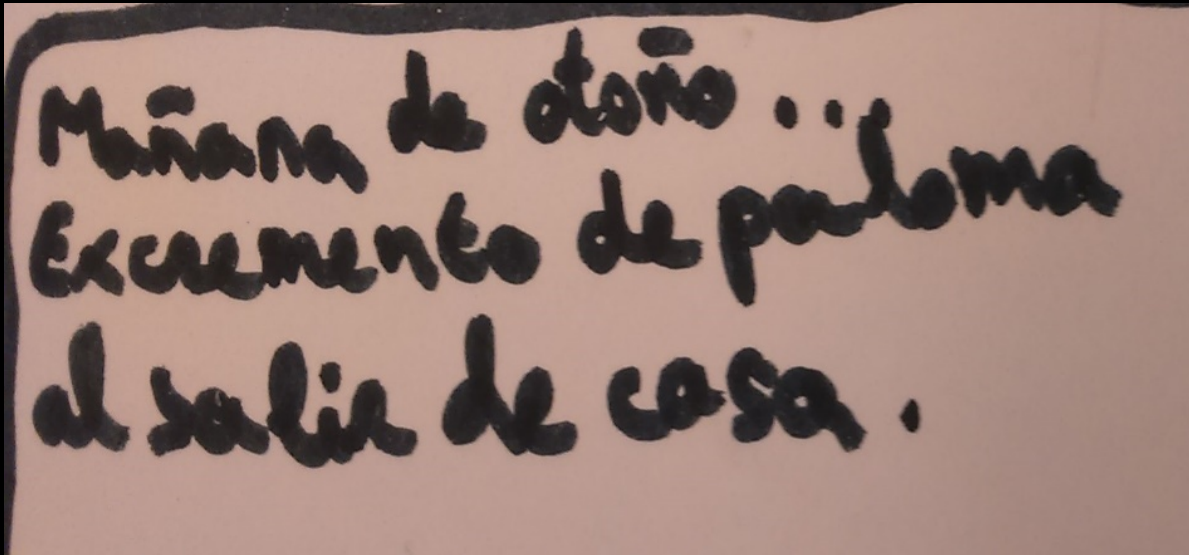 Mañana de otoño...
Excremento de paloma
al salir de casa.